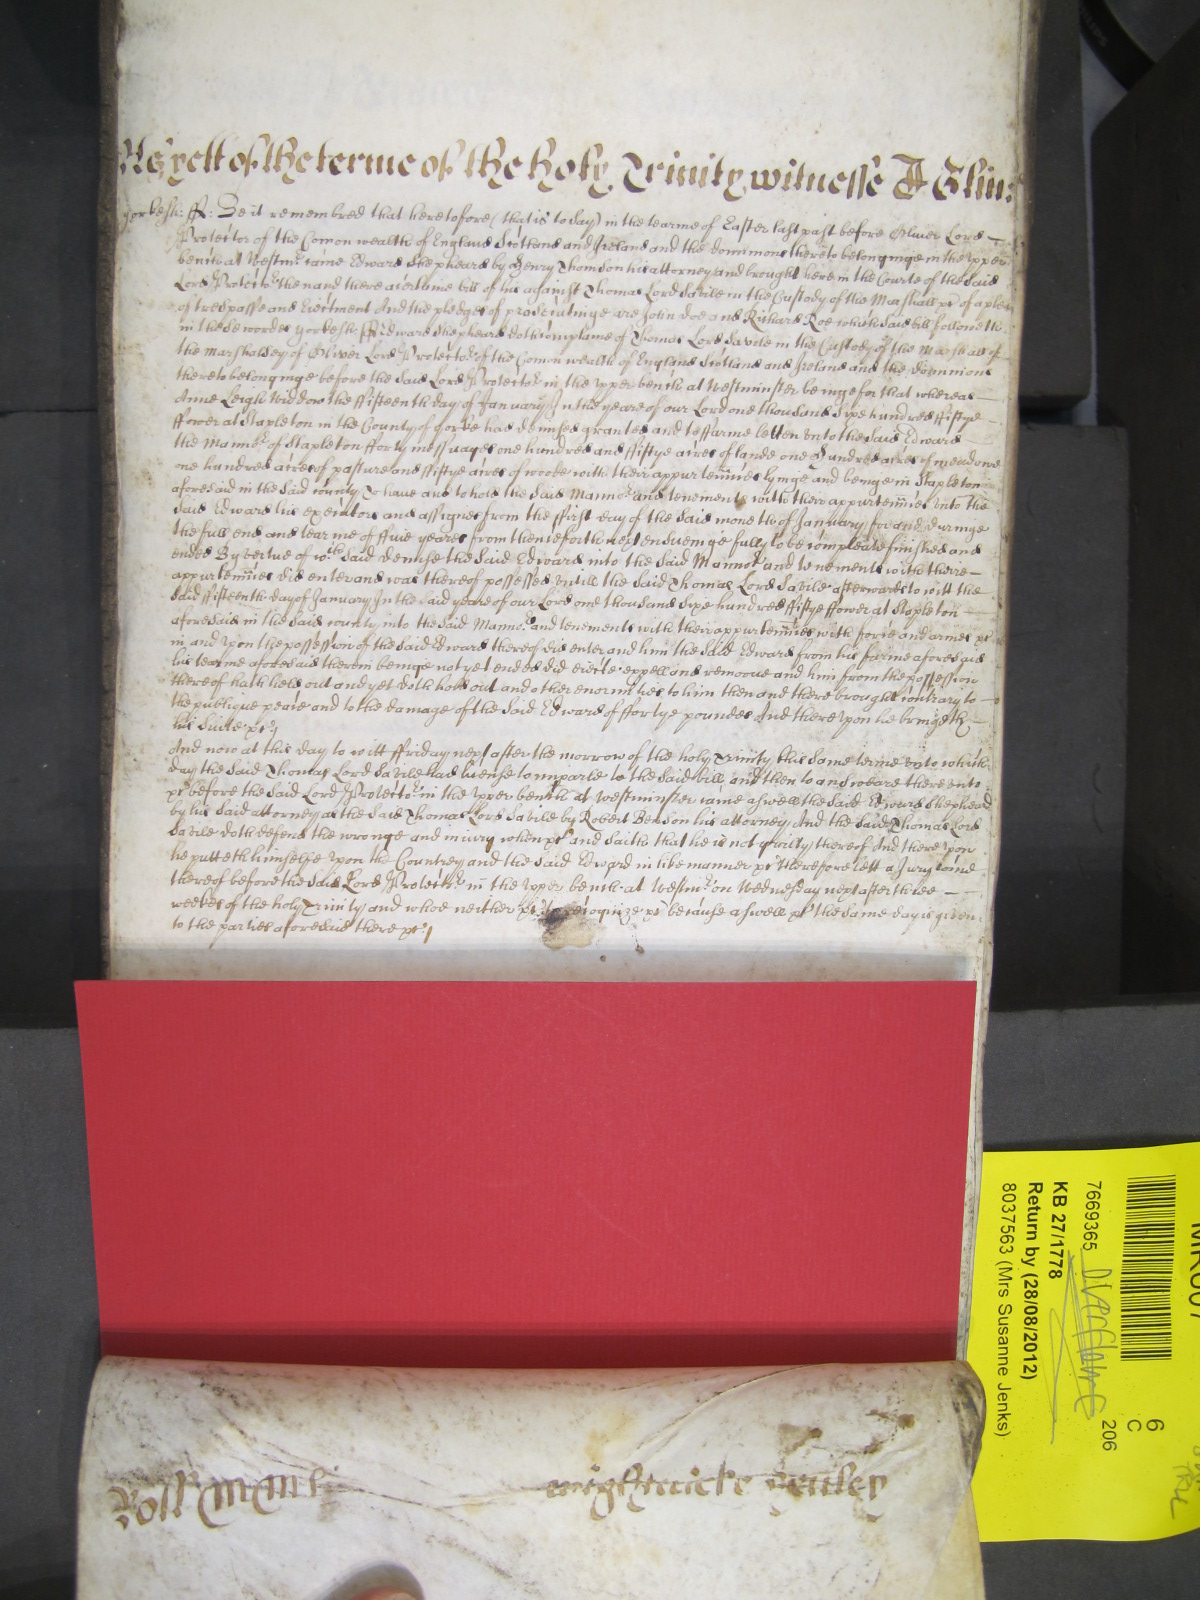 As yett of the terme of the holy Trinity witnesse H Glin:
Yorkesh: ss: Be it remembred that heretofore (that is to say) in the tearme of Easter last past before Oliver Lord
Protector of the Comon wealth of England Scotland and Ireland and the dominions thereto belonginge in the Upper
bench at Westmr came Edward Shepheard by Henry Thomson his attorney and brought here in the Courte of the said
Lord Protector then and there a certaine bill of his against Thomas Lord Savile in the Custody of the Marshall &c of a plea
of trespasse and Eiectment And the pledges of prosecutinge are John Doe and Richard Roe which said bill followeth
in these wordes Yorkesh: ss: Edward Shepheard doth complaine of Thomas Lord Savile in the Custody of the Marshall of
the Marshalsey of Oliver Lord Protector of the Comon wealth of England Scotland and Ireland and the dominions
thereto belonginge before the said Lord Protector in the Upper bench at Westminster beinge for that whereas
Anne Leigh Widdow the ffifteenth day of January In the yeare of our Lord one thousand Sixe hundred ffiftye
ffower at Stapleton in the County of Yorke had demised granted and to ffarme letten unto the said Edward
the Mannor of Stapleton fforty messuages one hundred and ffiftye acres of lande one hundred acres of meadowe
one hundred acres of pasture and ffiftye acres of woode with their appurtennces lyinge and beinge in Stapleton
aforesaid in the said county To have and to hold the said Mannor and tenements with their appurtennces unto the
said Edward his executors and assignes from the ffirst day of the said moneth of January for and duringe
the full end and tearme of ffive yeares from thenceforth next ensueinge fully to be compleate finished and
ended By vertue of wch said demise the said Edward into the said Mannor and tenements with there
appurtennces did enter and was thereof possessed untill the said Thomas Lord Savile afterwards to witt the
said ffifteenth day of January In the said yeare of our Lord one thousand Sixe hundred ffiftye ffower at Stapleton
aforesaid in the said county into the said Mannor and tenements with their appurtennces with force and armes &c
in and Upon the possession of the said Edward thereof did enter and him the said Edward from his farme aforesaid
his tearme aforesaid therein beinge not yet ended did eiecte expell and remoove and him from the possession
thereof hath held out and yet doth hold out and other enormities to him then and there brought contrary to
the publique peace and to the damage of the said Edward of ffortye poundes And there Upon he bringeth
his suite &c
And now at this day to witt ffriday next after the morrow of the holy Trinity this same terme unto which
day the said Thomas Lord Savile had license to imparle to the said bill and then to answeare thereunto
&c before the said Lord Protector in the Upper bench at Westminster came aswell the said Edward Shepheard
by his said attorney as the said Thomas Lord Savile by Robert Benson his attorney And the said Thomas Lord
Savile doth defend the wronge and iniury when &c and saith that he is not guilty thereof And there Upon
he putteth himselfe Upon the Countrey and the said Edward in like manner &c Therefore lett a Jury come
thereof before the said Lord Protector in the Upper bench at Westmr on Wednesday next after three
weekes of the holy Trinity and whoe neither &c to recognize &c because aswell &c the same day is given
to the parties aforesaid there &c
7669365
KB 27/1778
Return by (28/08/2012)
8037563 (Mrs Susanne Jenks)
206
6
C
Roll